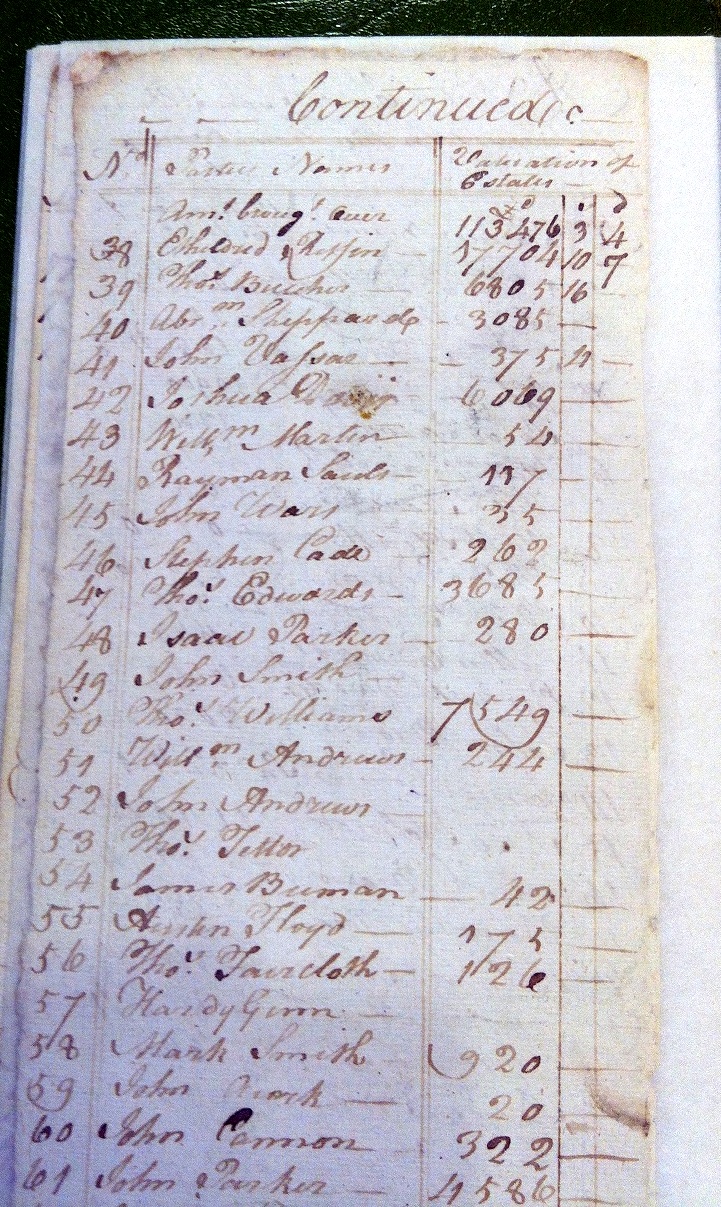 Continued &c
No. Parties Names Valuation of Estates
£ s d
Amt. broug't. over 113476 3 4
38 Etheldred Ruffin 17704 10 7
39 Thos. Butcher 6805 16 —
40 Abrm. Sheppard 3085 —
41 John Vassar 375 4 —
42 Joshua 6069 —
43 Willm. Martin 54 —
44 Rayman Sauls 117 —
45 John Wars 35 —
46 Stephen Cade 262 —
47 Thos. Edwards 3685 —
48 Isaac Parker 280 —
49 John Smith —
50 Thos. Williams 7549 —
51 Willm. Andrews 244 —
52 John Andrews —
53 Thos. Tellor
54 James Beeman — 42 —
55 Austin Floyd — 175 —
56 Thos. Faircloth — 126 —
57 Hardy Ginn —
58 Mark Smith 920 —
59 John — 20 —
60 John Cannon 322 —
61 John Parker — 4586 —